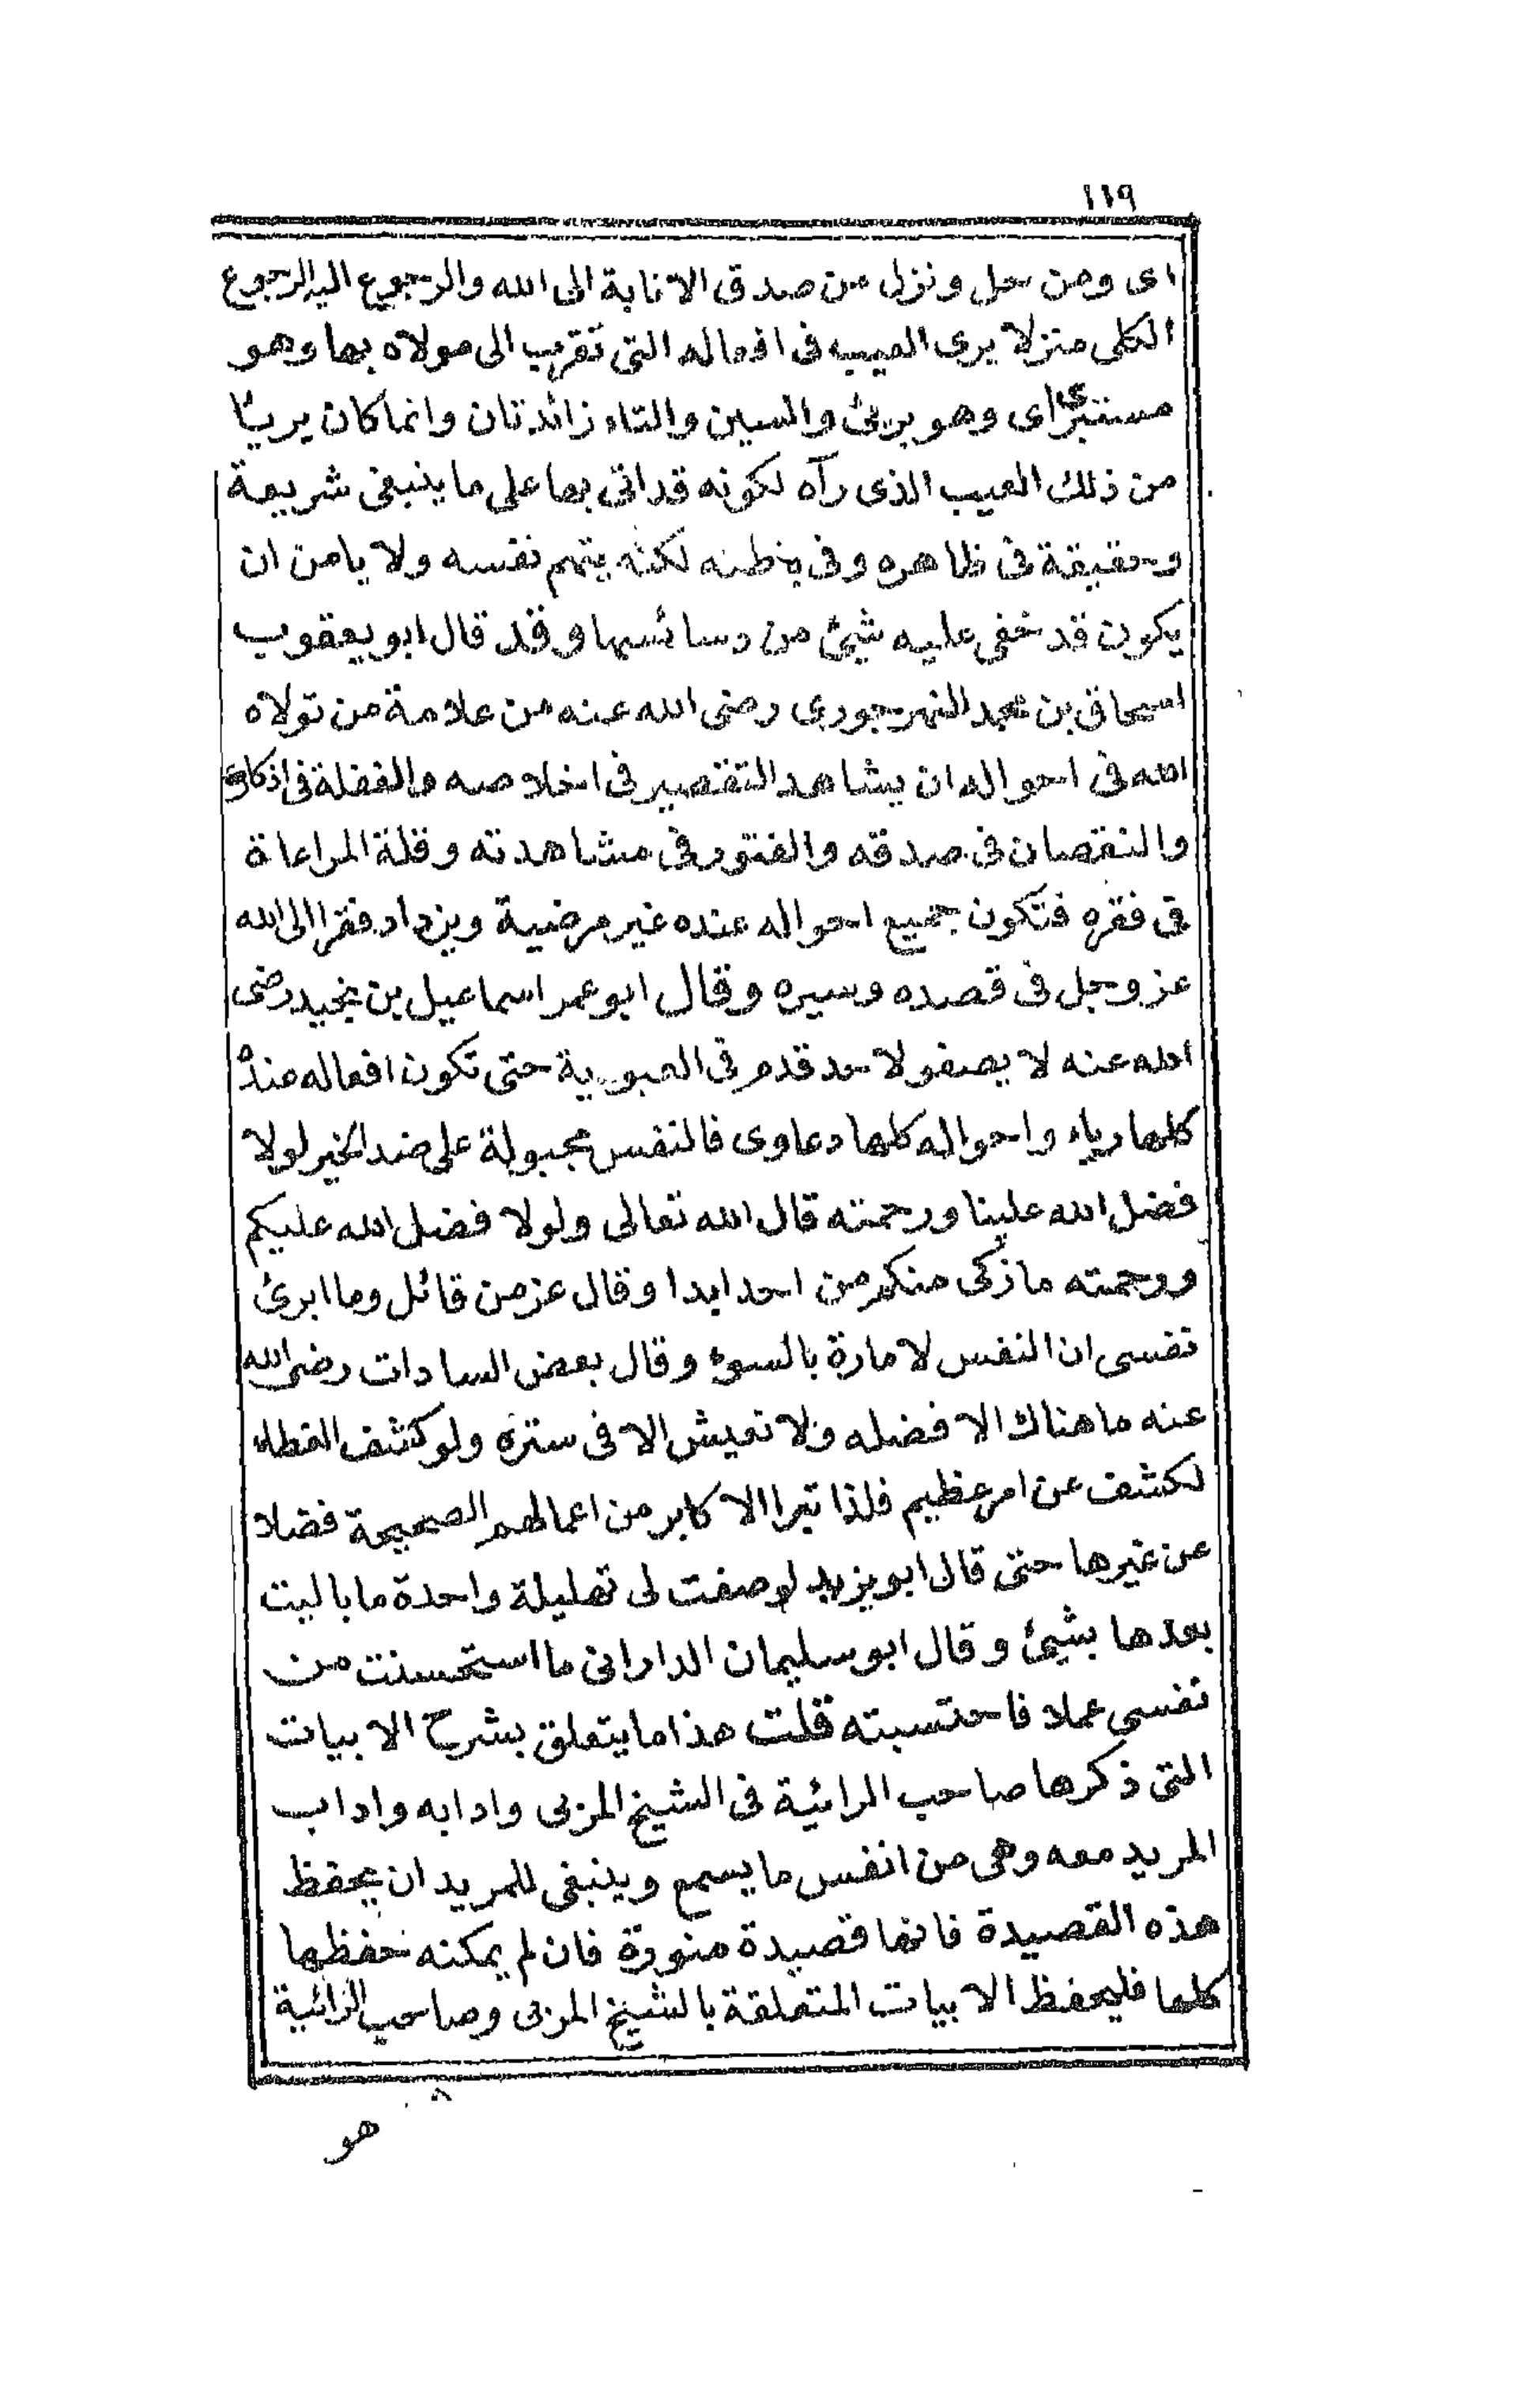 ١١٩
اى ومن حل ونزل من صدق الانابة الى الله والرجوع اليه الرجوع
الكلى منزلا يرى العيب فى افعاله التى تقرب الى مولاه بها وهو
مستبرئ اى وهو برئ والسين والتاء زائدتان وانما كان بريئا
من ذلك العيب الذى رآه لكونه قد اتى بها على ما ينبغى شريعة
وحقيقة فى ظاهره وفى باطنه لكنه يتهم نفسه ولا يامن ان
يكون قد خفى عليه شيئ من دسائسها وقد قال ابو يعقوب
اسحاق بن محمد النهرجورى رضى الله عنه من علامة من تولاه
الله فى احواله ان يشاهد التقصير فى اخلاصه والغفلة فى اذكاره
والنقصان فى صدقه والفتور فى مشاهدته وقلة المراعاة
فى فقره فتكون جميع احواله عنده غير مرضية ويزداد فقرا الى الله
عز وجل فى قصده وسيره وقال ابو عمر اسماعيل بن نجيد رضى
الله عنه لا يصفو لاحد قدم فى العبودية حتى تكون افعاله عنده
كلها رياء واحواله كلها دعاوى فالنفس مجبولة على ضد الخير لولا
فضل الله علينا ورحمته قال الله تعالى ولولا فضل الله عليكم
ورحمته ما زكى منكم من احد ابدا وقال عز من قائل وما ابرئ
نفسى ان النفس لامارة بالسوء وقال بعض السادات رضى الله
عنه ما هناك الا فضله ولا نعيش الا فى ستره ولو كشف الغطاء
لكشف عن امر عظيم فلذا تبرا الاكابر من اعمالهم الصحيحة فضلا
عن غيرها حتى قال ابو يزيد لو صفت لى تهليلة واحدة ما باليت
بعدها بشيئ وقال ابو سليمان الدارانى ما استحسنت من
نفسى عملا فاحتسبته قلت هذا ما يتعلق بشرح الابيات
التى ذكرها صاحب الرائية فى الشيخ المربى وادابه واداب
المريد معه وهى من انفس ما يسمع وينبغى للمريد ان يحفظ
هذه القصيدة فانها قصيدة منورة فان لم يمكنه حفظها
كلها فليحفظ الابيات المتعلقة بالشيخ المربى وصاحب الرائية
هو